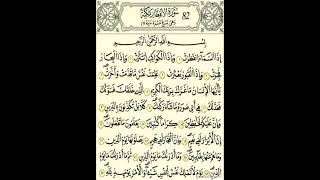 سُورَةُ الاِنْفِطَارِ مَكِّيَّةٌ
82
بِسْمِ اللَّهِ الرَّحْمَٰنِ الرَّحِيمِ
إِذَا السَّمَاءُ انْفَطَرَتْ ۝ وَإِذَا الْكَوَاكِبُ انْتَثَرَتْ ۝ وَإِذَا الْبِحَارُ
فُجِّرَتْ ۝ وَإِذَا الْقُبُورُ بُعْثِرَتْ ۝ عَلِمَتْ نَفْسٌ مَا قَدَّمَتْ وَأَخَّرَتْ ۝
يَا أَيُّهَا الْإِنْسَانُ مَا غَرَّكَ بِرَبِّكَ الْكَرِيمِ ۝ الَّذِي خَلَقَكَ فَسَوَّاكَ
فَعَدَلَكَ ۝ فِي أَيِّ صُورَةٍ مَا شَاءَ رَكَّبَكَ ۝ كَلَّا بَلْ تُكَذِّبُونَ بِالدِّينِ ۝
وَإِنَّ عَلَيْكُمْ لَحَافِظِينَ ۝ كِرَامًا كَاتِبِينَ ۝ يَعْلَمُونَ مَا تَفْعَلُونَ ۝
إِنَّ الْأَبْرَارَ لَفِي نَعِيمٍ ۝ وَإِنَّ الْفُجَّارَ لَفِي جَحِيمٍ ۝ يَصْلَوْنَهَا يَوْمَ الدِّينِ ۝
وَمَا هُمْ عَنْهَا بِغَائِبِينَ ۝ وَمَا أَدْرَاكَ مَا يَوْمُ الدِّينِ ۝ ثُمَّ مَا أَدْرَاكَ مَا يَوْمُ
الدِّينِ ۝ يَوْمَ لَا تَمْلِكُ نَفْسٌ لِنَفْسٍ شَيْئًا وَالْأَمْرُ يَوْمَئِذٍ لِلَّهِ ۝